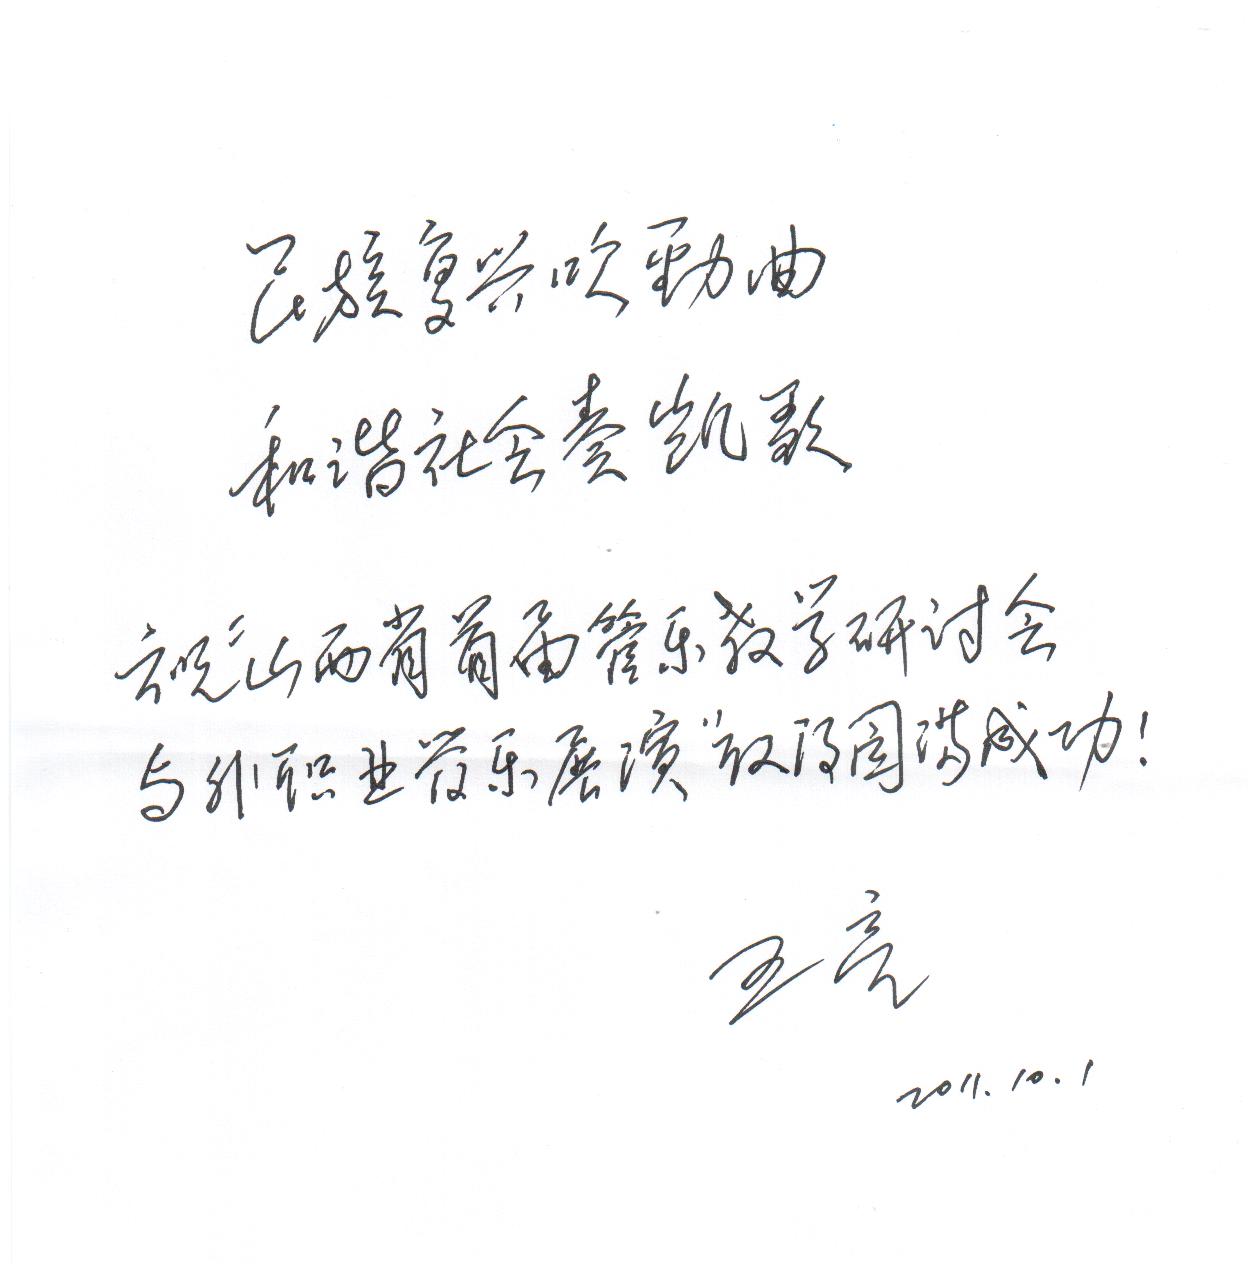 民族复兴吹劲曲
和谐社会奏凯歌
祝“山西省首届管乐教学研讨会
与非职业管乐展演”取得圆满成功！
王亮
2011.10.1